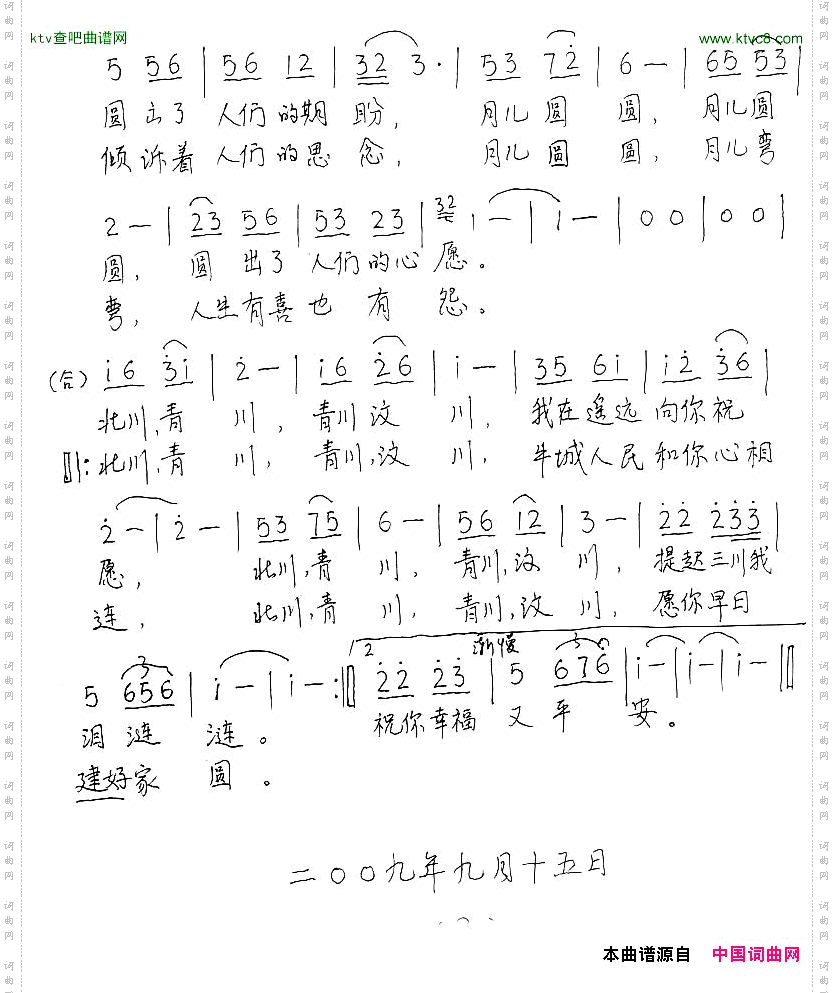 ktv查吧曲谱网 www.ktvc8.com
5 56 | 56 12 | 32 3· | 53 72̇ | 6 — | 65 53 |
圆出了 人们的期 盼, 月儿圆 圆, 月儿圆
倾诉着 人们的思 念, 月儿圆 圆, 月儿弯
2 — | 23 56 | 53 23 | 32 1 — | 1 — | 0 0 | 0 0 |
圆, 圆 出了 人们的心 愿。
弯, 人生有喜也 有 怨。
(合) i6 3̇i | 2̇ — | i6 2̇6 | i — | 35 6i | i2̇ 3̇6 |
北川,青 川, 青川汶 川, 我在遥远 向你祝
‖: 北川,青 川, 青川,汶 川, 羊城人民 和你心相
2̇ — | 2̇ — | 53 75 | 6 — | 56 i2̇ | 3̇ — | 2̇2̇ 2̇3̇3̇ |
愿, 北川,青 川, 青川,汶 川, 提起三川我
连, 北川,青 川, 青川,汶 川, 愿你早日
2 渐慢
5 656 | i — | i — :‖ 2̇2̇ 2̇3̇ | 5 676 | i — | i — | i — ‖
泪涟 涟。 祝你幸福 又 平 安。
建好家 圆。
二〇〇九年九月十五日
本曲谱源自 中国词曲网